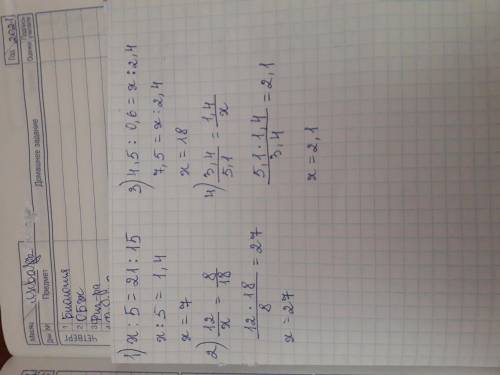 Год 2021
Месяц январь
Дн М Предмет Домашнее задание Оценка Подпись учителя
ЧЕТВЕРГ
1 Биология
2 ОБЖ
3 Физ-ра
1) x : 5 = 21 : 15
x : 5 = 1,4
x = 7
2) 12/x = 8/18
12 · 18/8 = 27
x = 27
3) 4,5 : 0,6 = x : 2,4
7,5 = x : 2,4
x = 18
4) 3,4/5,1 = 1,4/x
5,1 · 1,4/3,4 = 2,1
x = 2,1